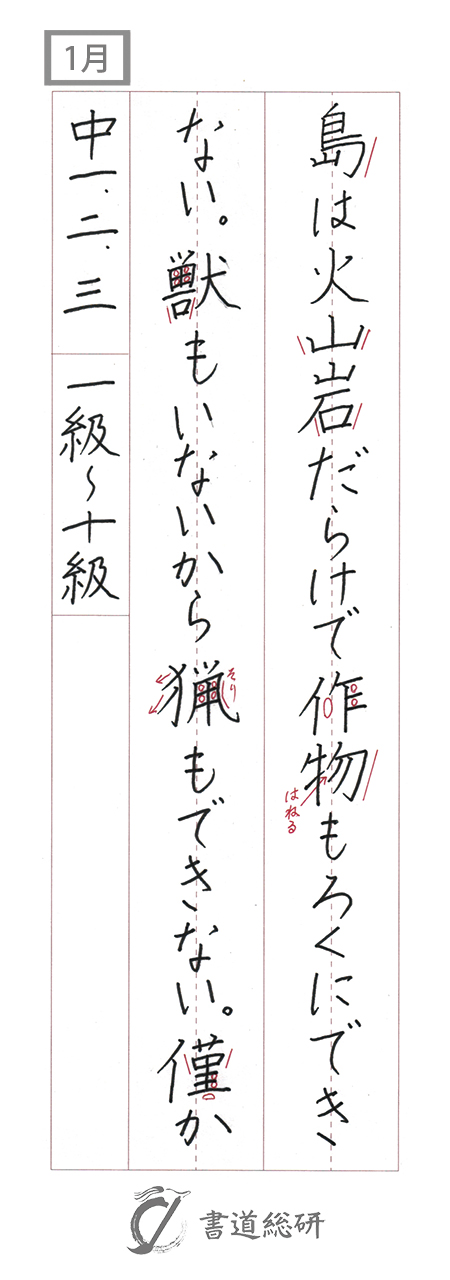 1月
島は火山岩だらけで作物もろくにでき
はねる
ない。獣もいないから猟もできない。僅か
そり
中一、二、三 一級〜十級
書道総研